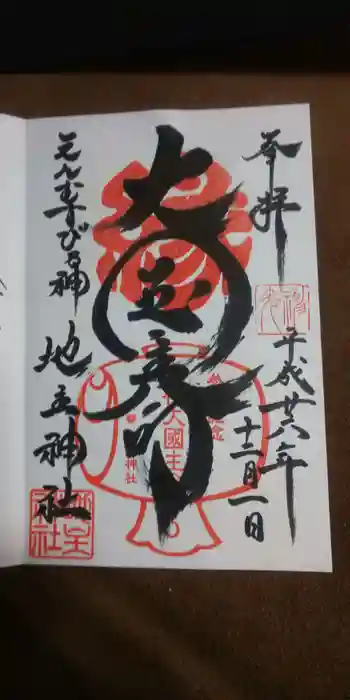 奉拝
平成廿六年
十二月一日
大国主命
えんむすびの神
地主神社
大國主
神社